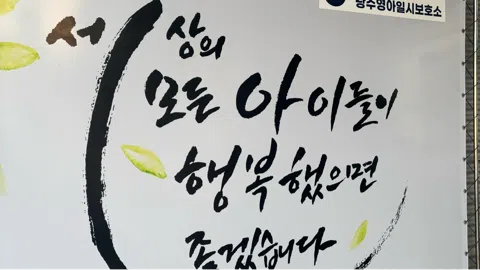 광주영아일시보호소
세상의
모든 아이들이
행복했으면
좋겠습니다